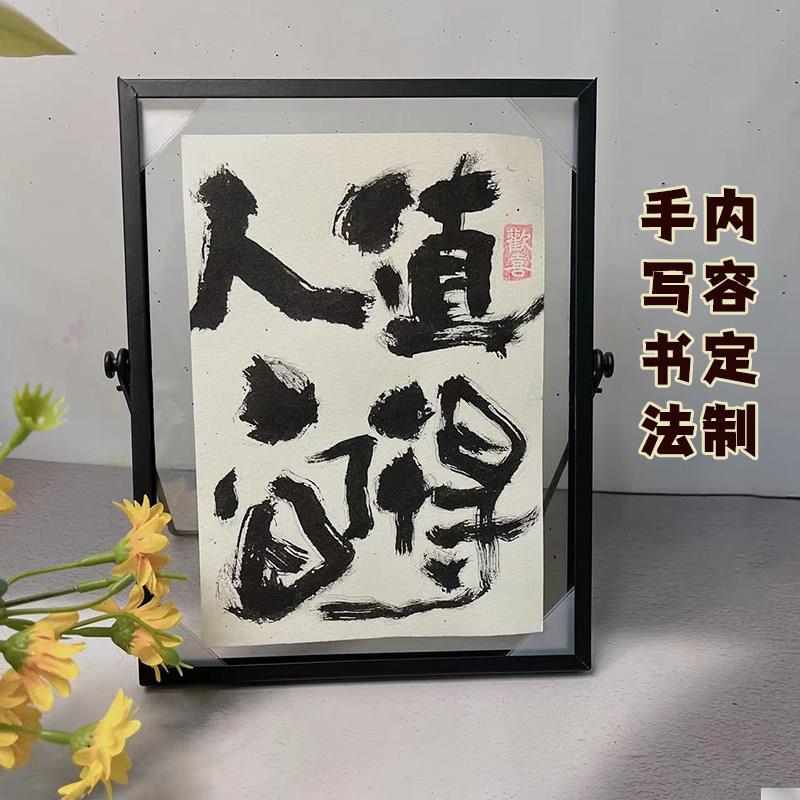 人间
值得
歡喜
内容定制
手写书法